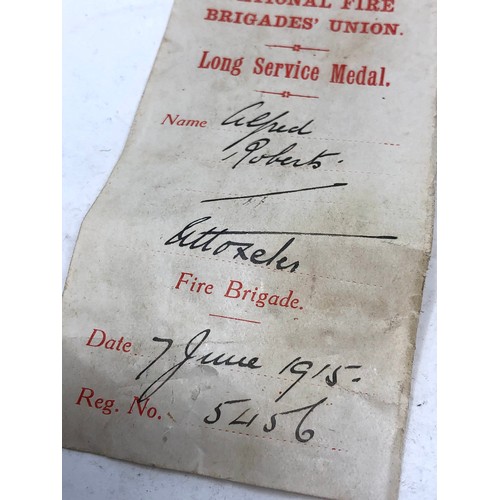 TIONAL FIRE
BRIGADES' UNION.
Long Service Medal.
Name Alfred
Roberts.
Uttoxeter
Fire Brigade.
Date 7 June 1915.
Reg. No. 5456